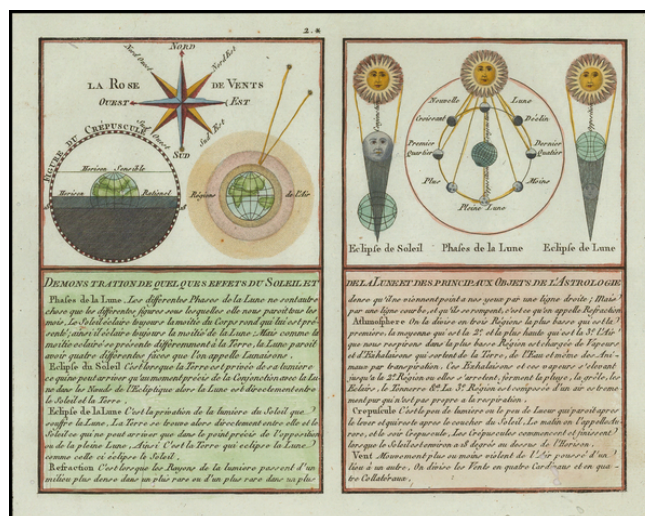 2.
NORD
Nord Ouest
Nord Est
LA ROSE DE VENTS
OUEST
EST
Sud Ouest
Sud Est
SUD
FIGURE DU CRÉPUSCULE
Horison Sensible
Horison Rationel
Régions de l'Air
Nouvelle Lune
Croissant
Déclin
Premier Quartier
Dernier Quatier
Plus
Moins
Pleine Lune
Eclipse de Soleil
Phases de la Lune
Eclipse de Lune
DEMONSTRATION DE QUELQUES EFFETS DU SOLEIL ET
Phases de la Lune. Les différentes Phases de la Lune ne sont autre
chose que les différentes figures sous lesquelles elle nous paroit tous les
mois. Le Soleil éclaire toujours la moitié du Corps rond qui lui est pré-
senté; ainsi il éclaire toujours la moitié de la Lune. Mais comme la
moitié éclairée se présente différemment à la Terre, la Lune paroit
avoir quatre différentes faces que l'on appelle Lunaisons.
Eclipse du Soleil C'est lorsque la Terre est privée de sa lumiere
ce qui ne peut arriver qu'au moment précis de la Conjonction avec la Lu-
ne dans les Nœuds de l'Ecliptique alors la Lune est directement entre
le Soleil et la Terre.
Eclipse de la Lune C'est la privation de la lumiere du Soleil que
souffre la Lune. La Terre se trouve alors directement entre elle et le
Soleil ce qui ne peut arriver que dans le point précis de l'opposition
ou de la pleine Lune; Ainsi C'est la Terre qui éclipse la Lune
comme celle ci éclipse le Soleil.
Refraction C'est lorsque les Rayons de la lumiere passent d'un
milieu plus dense dans un plus rare ou d'un plus rare dans un plus
DE LA LUNE ET DES PRINCIPAUX OBJETS DE L'ASTROLOGIE
dense qu'ils ne viennent point a nos yeux par une ligne droite; Mais
par une ligne courbe, et qu'ils se rompent, c'est ce qu'on appelle Refraction
Athmosphere On la divise en trois Regions la plus basse qui est la
premiere, la moyenne qui est la 2e. et la plus haute qui est la 3e. l'Air
que nous respirons dans la plus basse Région est chargée de Vapeurs
et d'Exhalaisons qui sortent de la Terre, de l'Eau et même des Ani-
maux par transpiration. Ces Exhalaisons et ces vapeurs s'élevant
jusqu'a la 2e. Région ou elles s'arretent, forment la pluye, la grêle, les
Eclairs, le Tonnerre &a. La 3e. Région est composée d'un air extreme-
ment pur qui n'est pas propre a la respiration.
Crepuscule C'est le peu de lumiere ou le peu de Lueur qui paroit après
le lever et qui reste après le coucher du Soleil. Le matin on l'appelle Au-
rore, et le soir Crepuscule. Les Crépuscules commencent et finissent
lorsque le Soleil est environ a 18 degrés au dessous de l'Horison.
Vent Mouvement plus ou moins violent de l'Air poussé d'un
lieu à un autre. On divise les Vents en quatre Cardinaux et en qua-
tre Collatéraux.